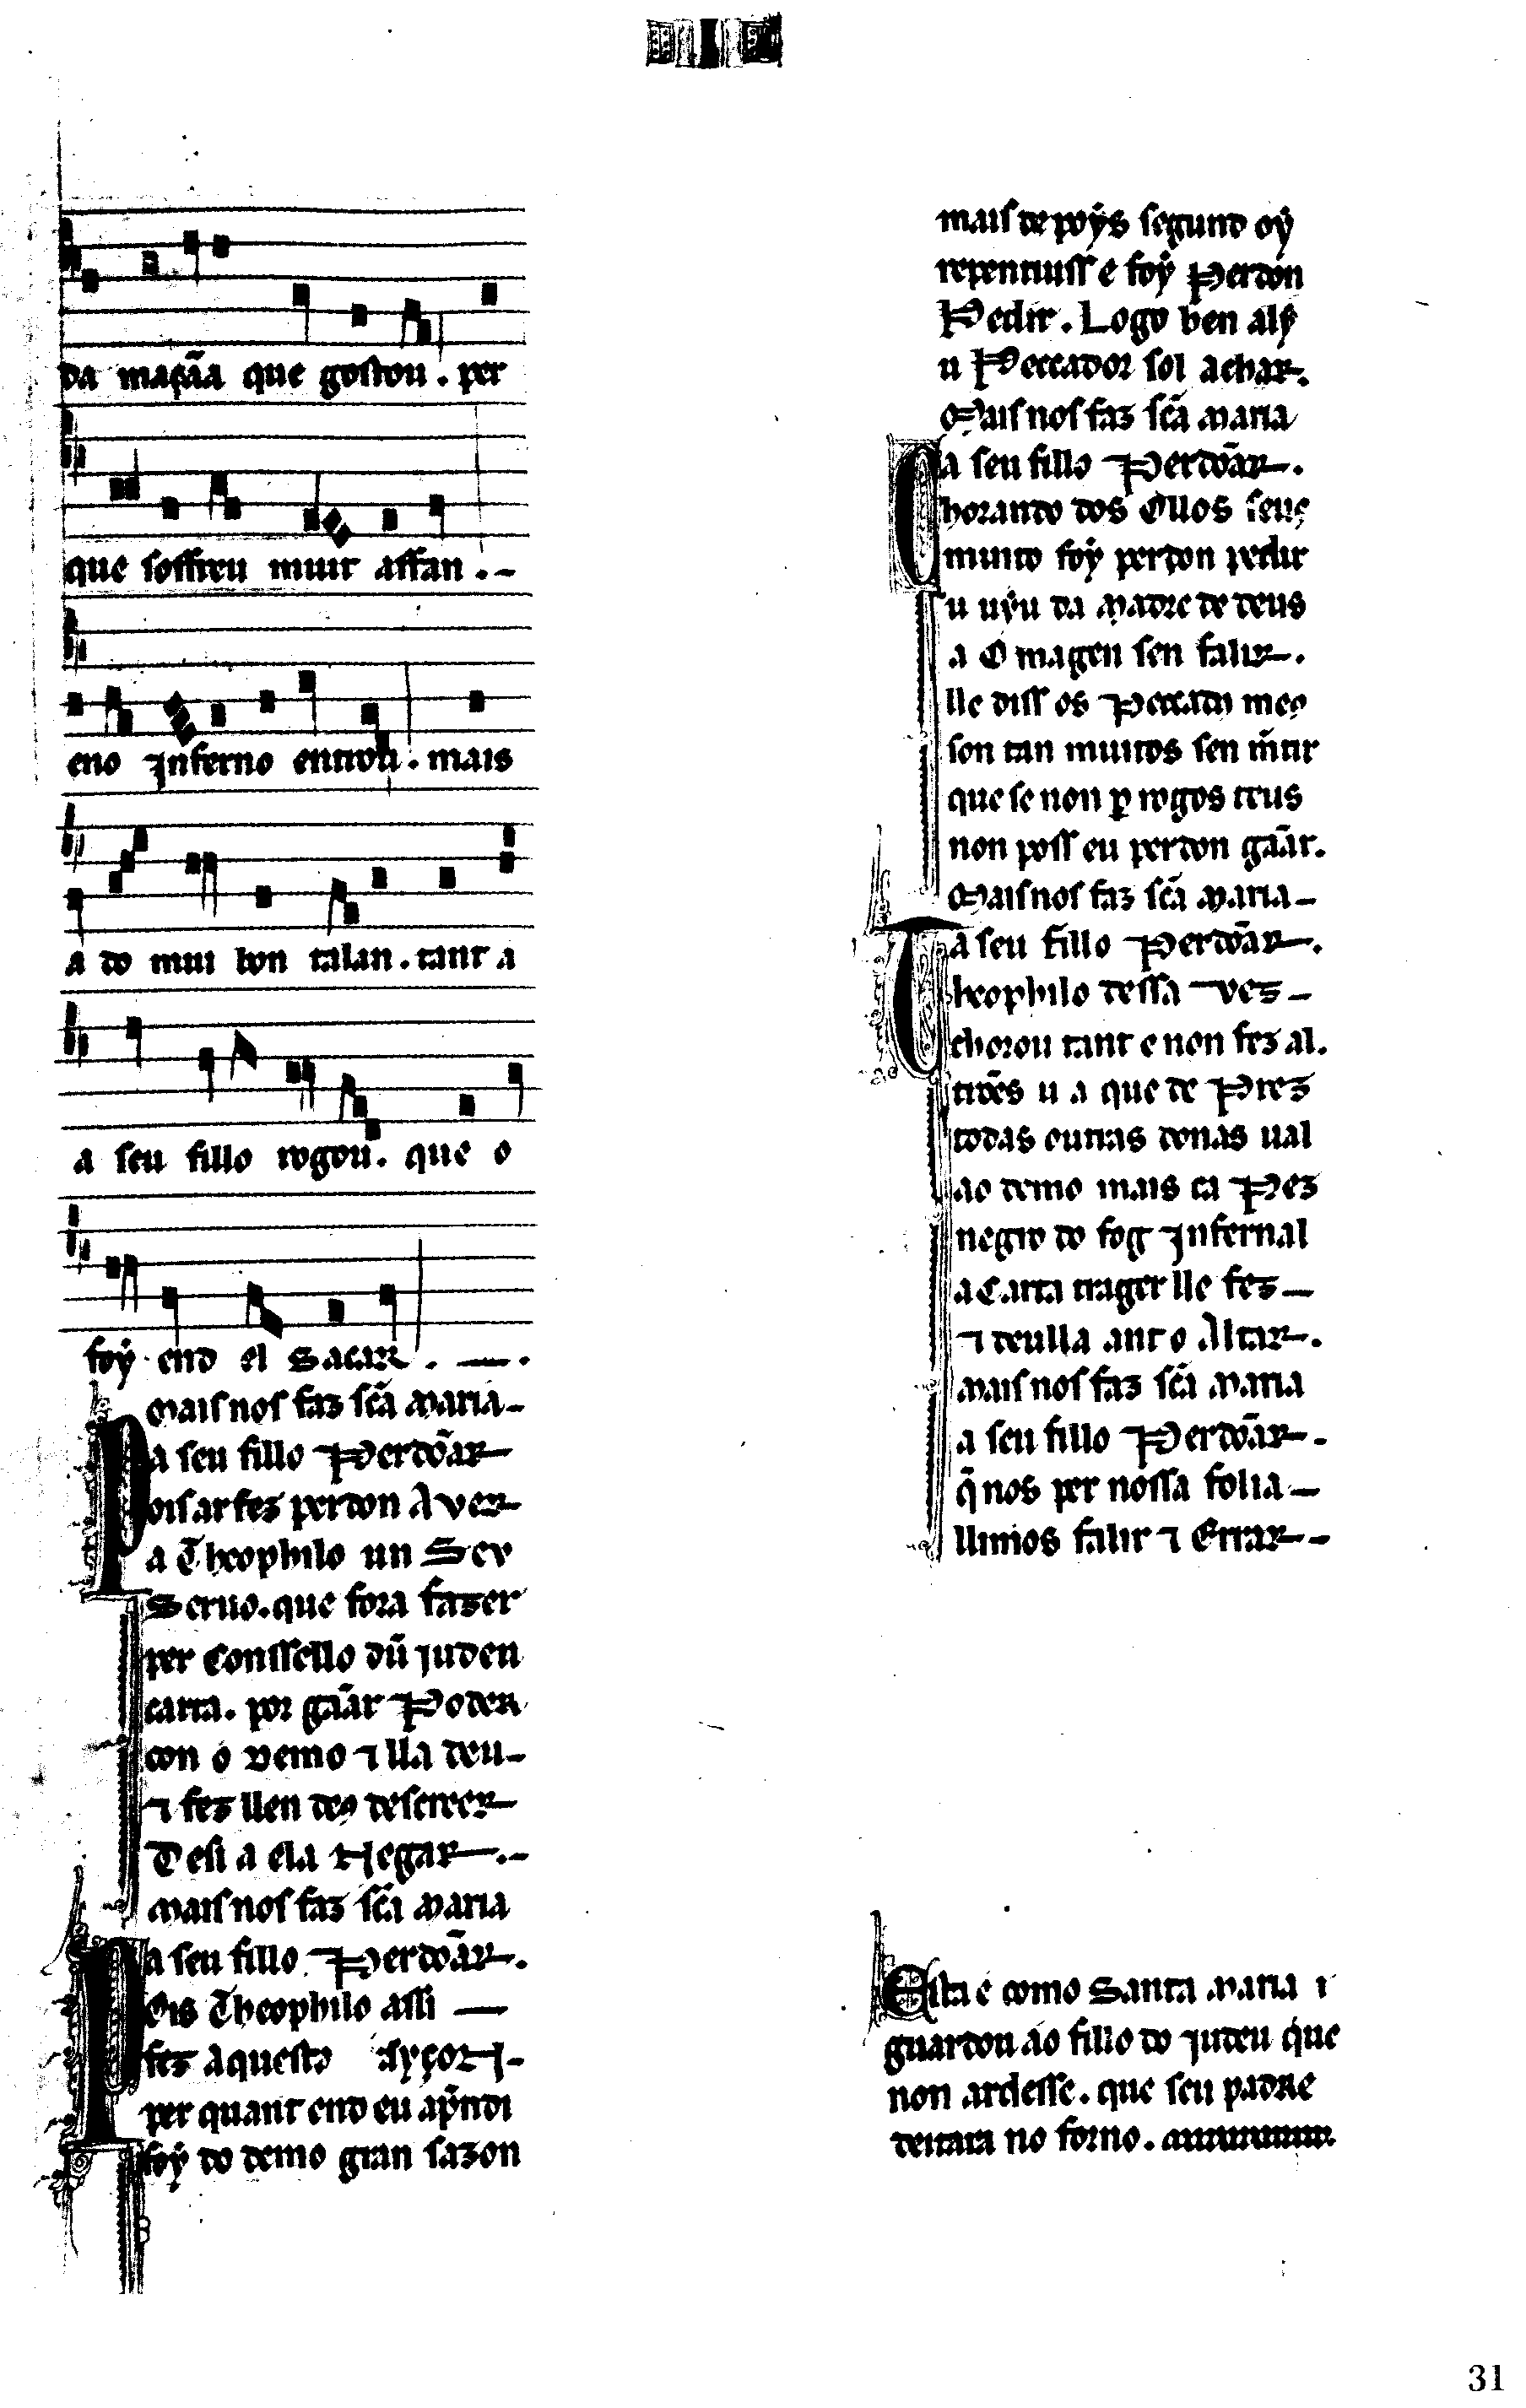 da maçãa que gostou. per
que soffreu muit affan.
eno jnferno entrou. mais
a do mui bon talan. tant a
a seu fillo rogou. que o
foÿ end el sacar.
Mais nos faz scã Maria
a seu fillo Perdõar
Pois ar fez perdon Aver
a Theophilo un Seu
Seruo. que fora fazer
per Conssello dũ judeu
carta. por gãar Poder
con o Demo ⁊ lla deu
⁊ fez llen de9 descreer
Desi a ela Negar.
Mais nos faz scã Maria
a seu fillo Perdõar.
Pois Theophilo assi
fez aquesto
per quant end eu ap̃ndi
foÿ do demo gran sazon
mais depoÿs segund oÿ
repentiuss e foÿ Perdon
Pedir. Logo ben alÿ
u Peccador sol achar.
Mais nos faz scã Maria
a seu fillo Perdõar.
Chorando dos Ollos seus
muito foÿ perdon pedir
u uÿu da Madre de deus
a Omagen sen falir.
lle diss os Peccad9 me9
son tan muitos sen m̃tir
que se non ꝑ rogos teus
non poss eu perdon gãar.
Mais nos faz scã Maria
a seu fillo Perdõar.
Theophilo dessa vez
chorou tant e non fez al.
trões u a que de Prez
todas outras donas ual
ao demo mais ca Pez
negro do fog jnfernal
a Carta trager lle fez
⁊ deulla ant o Altar.
Mais nos faz scã Maria
a seu fillo Perdõar.
q̃ nos per nossa folia
llimos falir ⁊ Errar
Esta é como Santa Maria
guardou ao fillo do judeu que
non ardesse. que seu padre
deitara no forno.
31